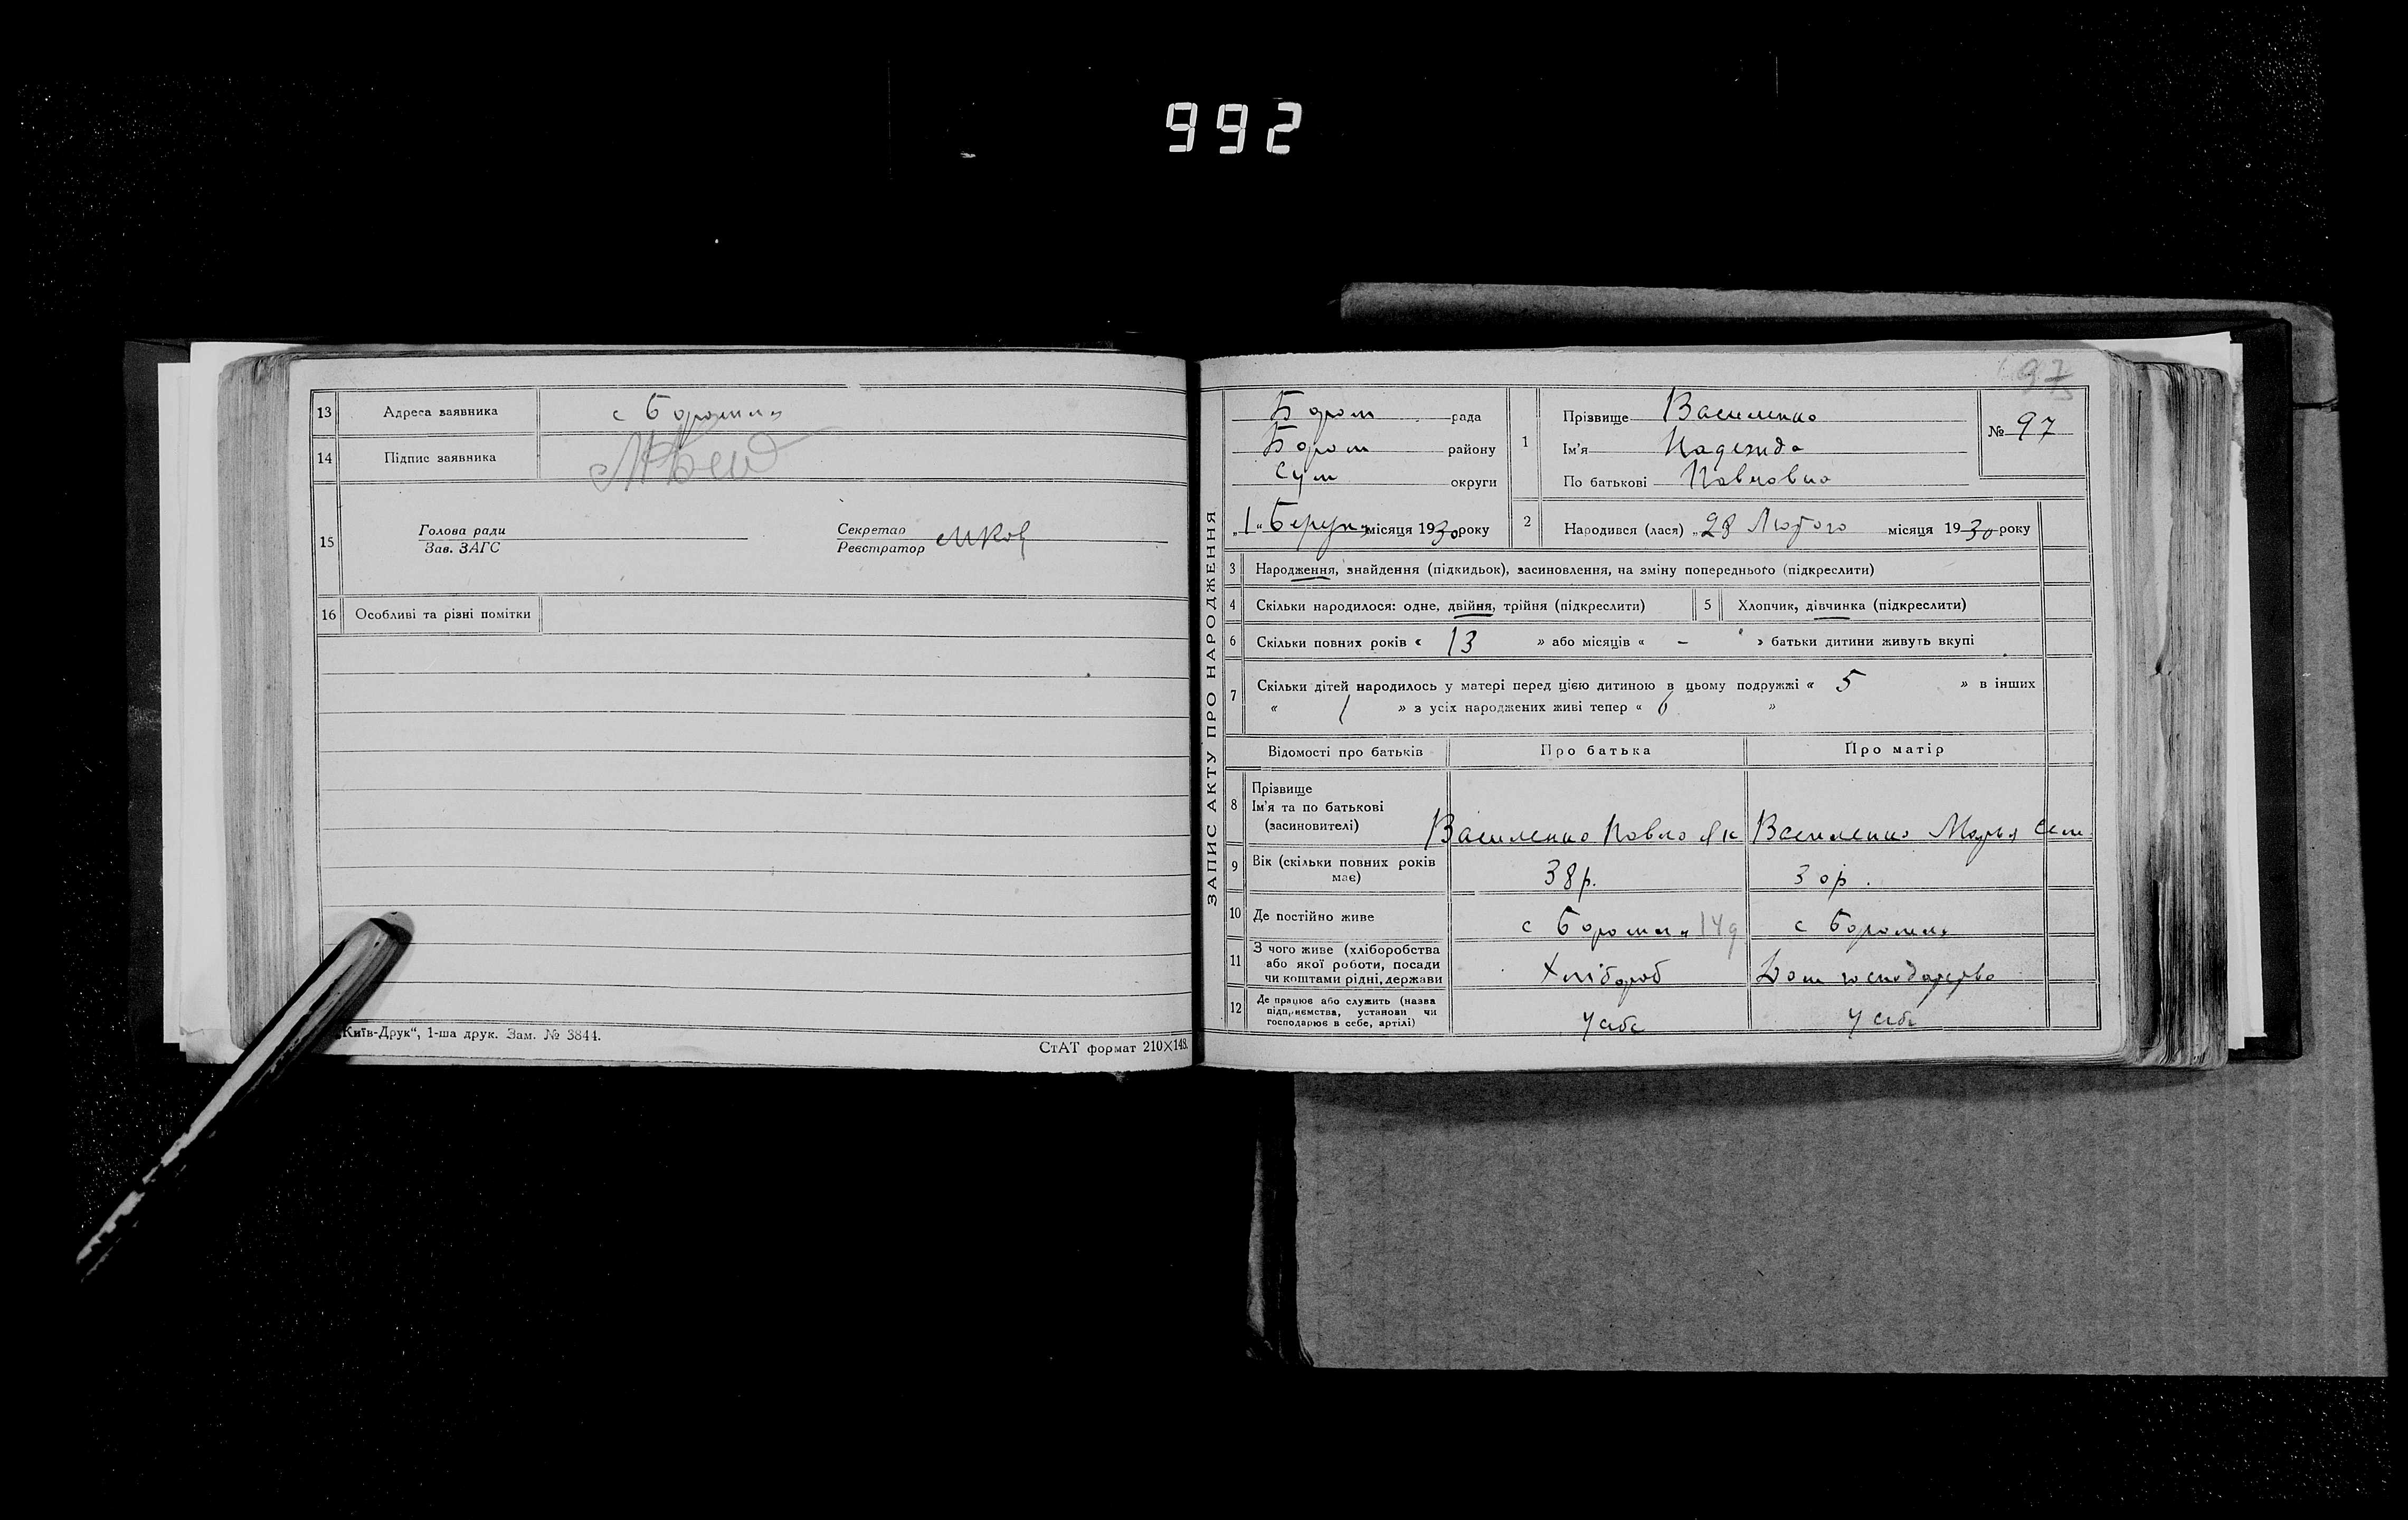 992
13 Адреса заявника с Боромля
14 Підпис заявника
15 Голова ради
Зав. ЗАГС
Секретар
Реєстратор
16 Особливі та різні помітки
„Київ-Друк“, 1-ша друк. Зам. № 3844.
СтАТ формат 210×148.
ЗАПИС АКТУ ПРО НАРОДЖЕННЯ
97
Бором рада
Бором району
Сум округи
„1“ Берез місяця 1930 року
1 Прізвище Василенко
Ім'я Надежда
По батькові Павловна
№ 97
2 Народився (лася) „28 Лютого місяця 1930 року
3 Народження, знайдення (підкидьок), засиновлення, на зміну попереднього (підкреслити)
4 Скільки народилося: одне, двійня, трійня (підкреслити) 5 Хлопчик, дівчинка (підкреслити)
6 Скільки повних років « 13 » або місяців « – » батьки дитини живуть вкупі
7 Скільки дітей народилось у матері перед цією дитиною в цьому подружжі « 5 » в інших
« 1 » з усіх народжених живі тепер « 6 »
Відомості про батьків Про батька Про матір
8 Прізвище
Ім'я та по батькові
(засиновителі)
Василенко Павло Як Василенко Марья Сем
9 Вік (скільки повних років
має)
38р. 30р.
10 Де постійно живе с Боромля с Боромля
11 З чого живе (хліборобства
або якої роботи, посади
чи коштами рідні, держави
Хлібороб Дом господарство
12 Де працює або служить (назва
підприємства, установи чи
господарює в себе, артілі)
У себе У себе